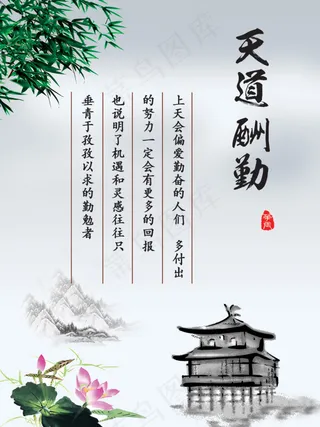 天道酬勤
上天会偏爱勤奋的人们 多付出
的努力一定会有更多的回报
也说明了机遇和灵感往往只
垂青于孜孜以求的勤勉者